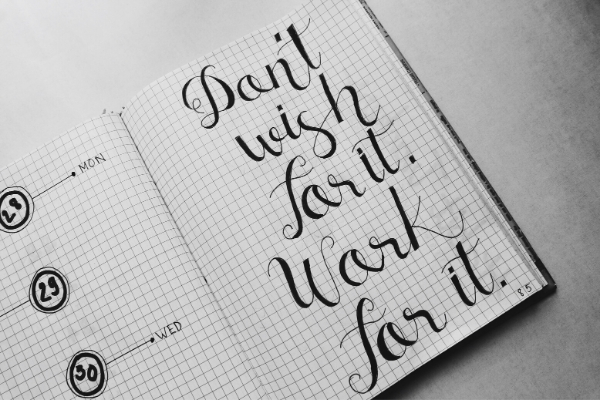 MON
28
29
WED
30
Don't
wish
for it.
Work
for it.
85